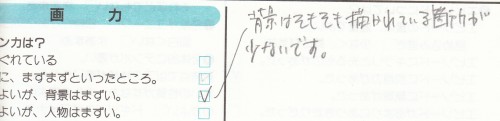 画 力
背景はそもそも描かれている箇所が
少ないです。
ンカは?
ぐれている
に、まずまずといったところ。
よいが、背景はまずい。
よいが、人物はまずい。